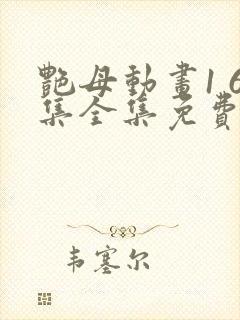 艷母動畫1 6
集全集免費
韦塞尔